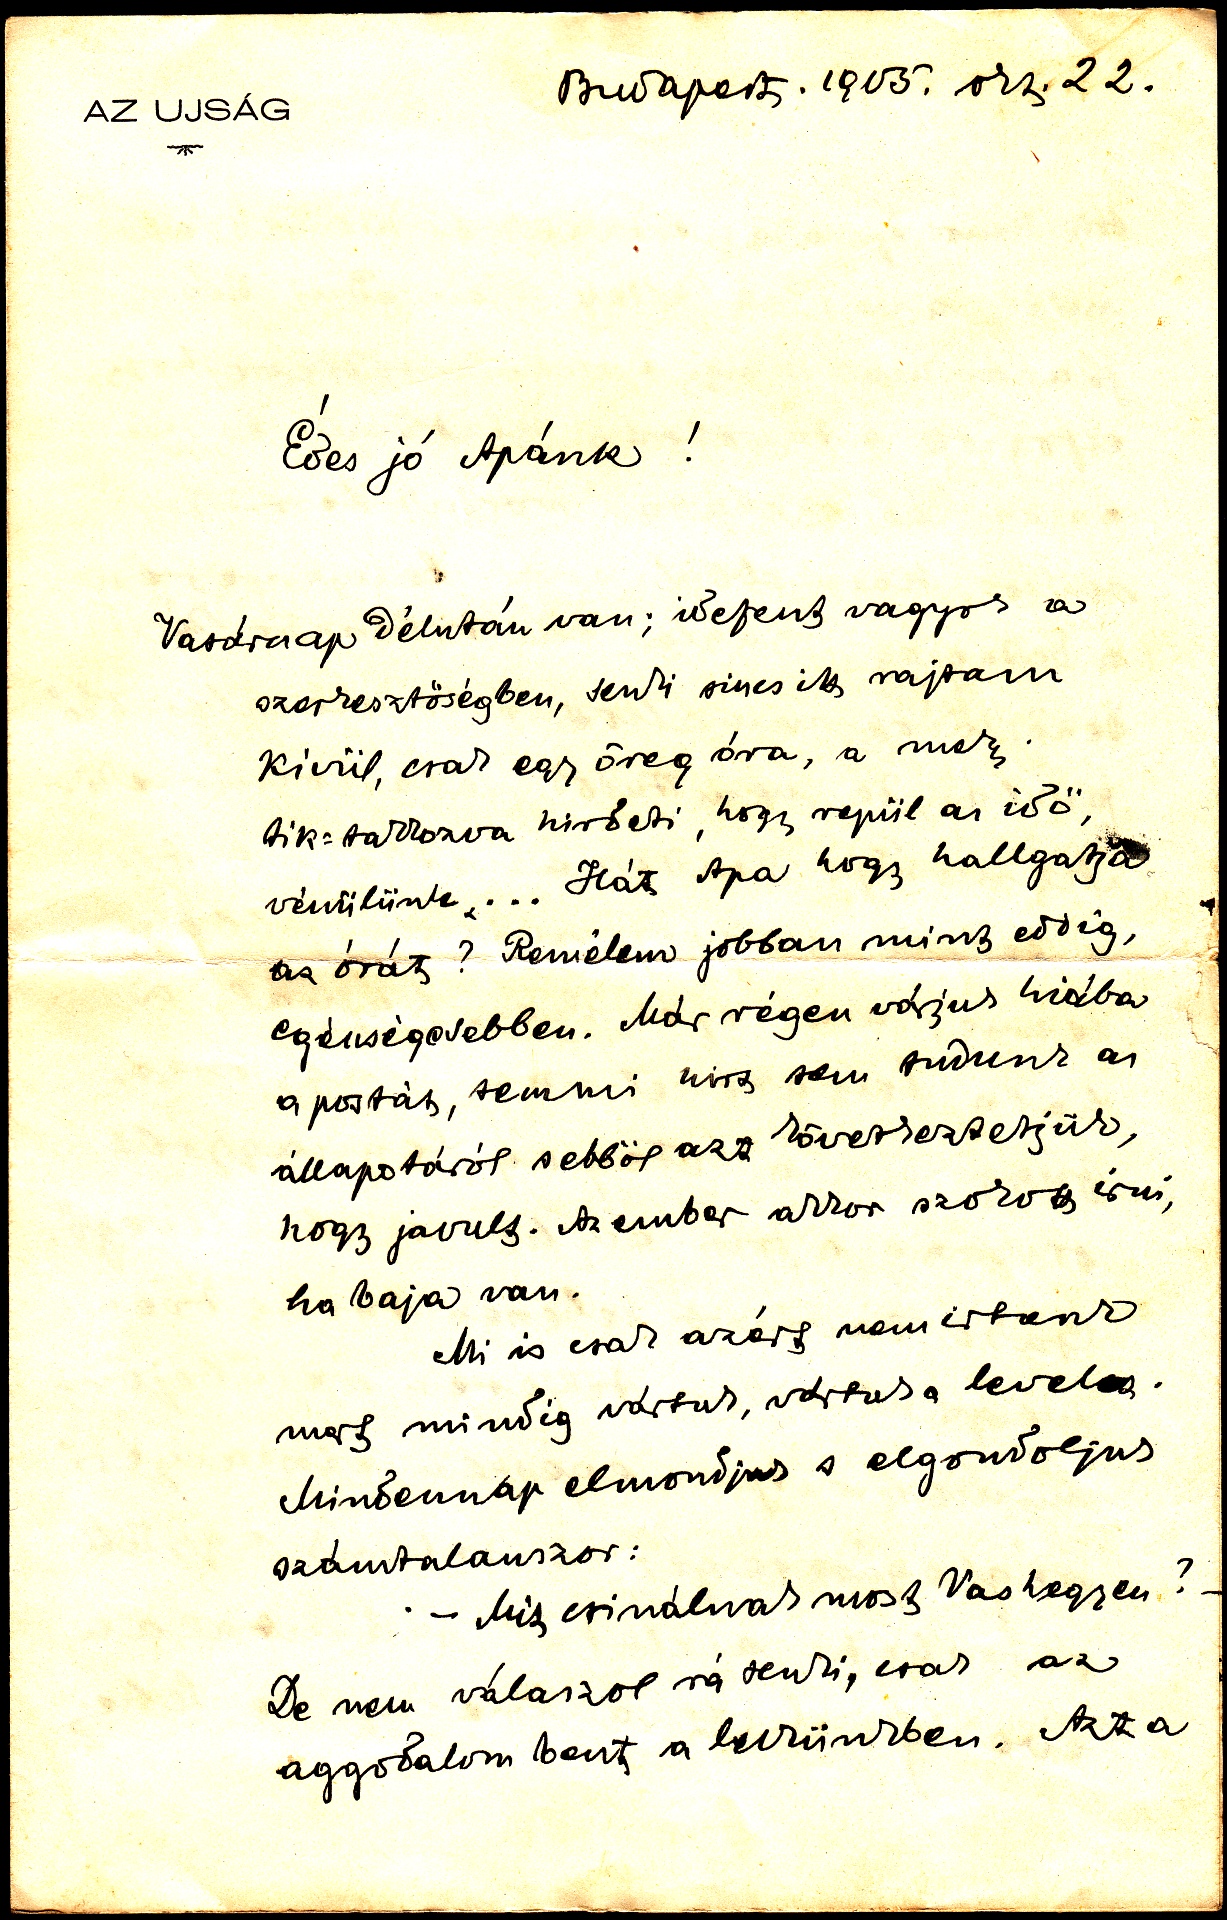 AZ UJSÁG
Budapest. 1905. okt. 22.
Édes jó Apánk!
Vasárnap délután van; idefent vagyok a
szerkesztöségben, senki sincs itt rajtam
kívül, csak egy öreg óra, a mely
tik-takkozva hirdeti, hogy repül az idö,
vénülünk... Hát Apa hogy hallgatja
az órát? Remélem jobban mint eddig,
egészségesebben. Már régen várjuk hiába
a postát, semmi hirt sem tudunk az
állapotáról s ebböl azt következtetjük,
hogy javult. Az ember akkor szokott irni,
ha baja van.
Mi is csak azért nem irtunk
mert mindig vártuk, vártuk a levelet.
Mindennap elmondjuk s elgondoljuk
számtalanszor:
- Mit csinálnak most Vashegyen? -
De nem válaszol rá senki, csak az
aggodalom bent a lelkünkben. Azt a